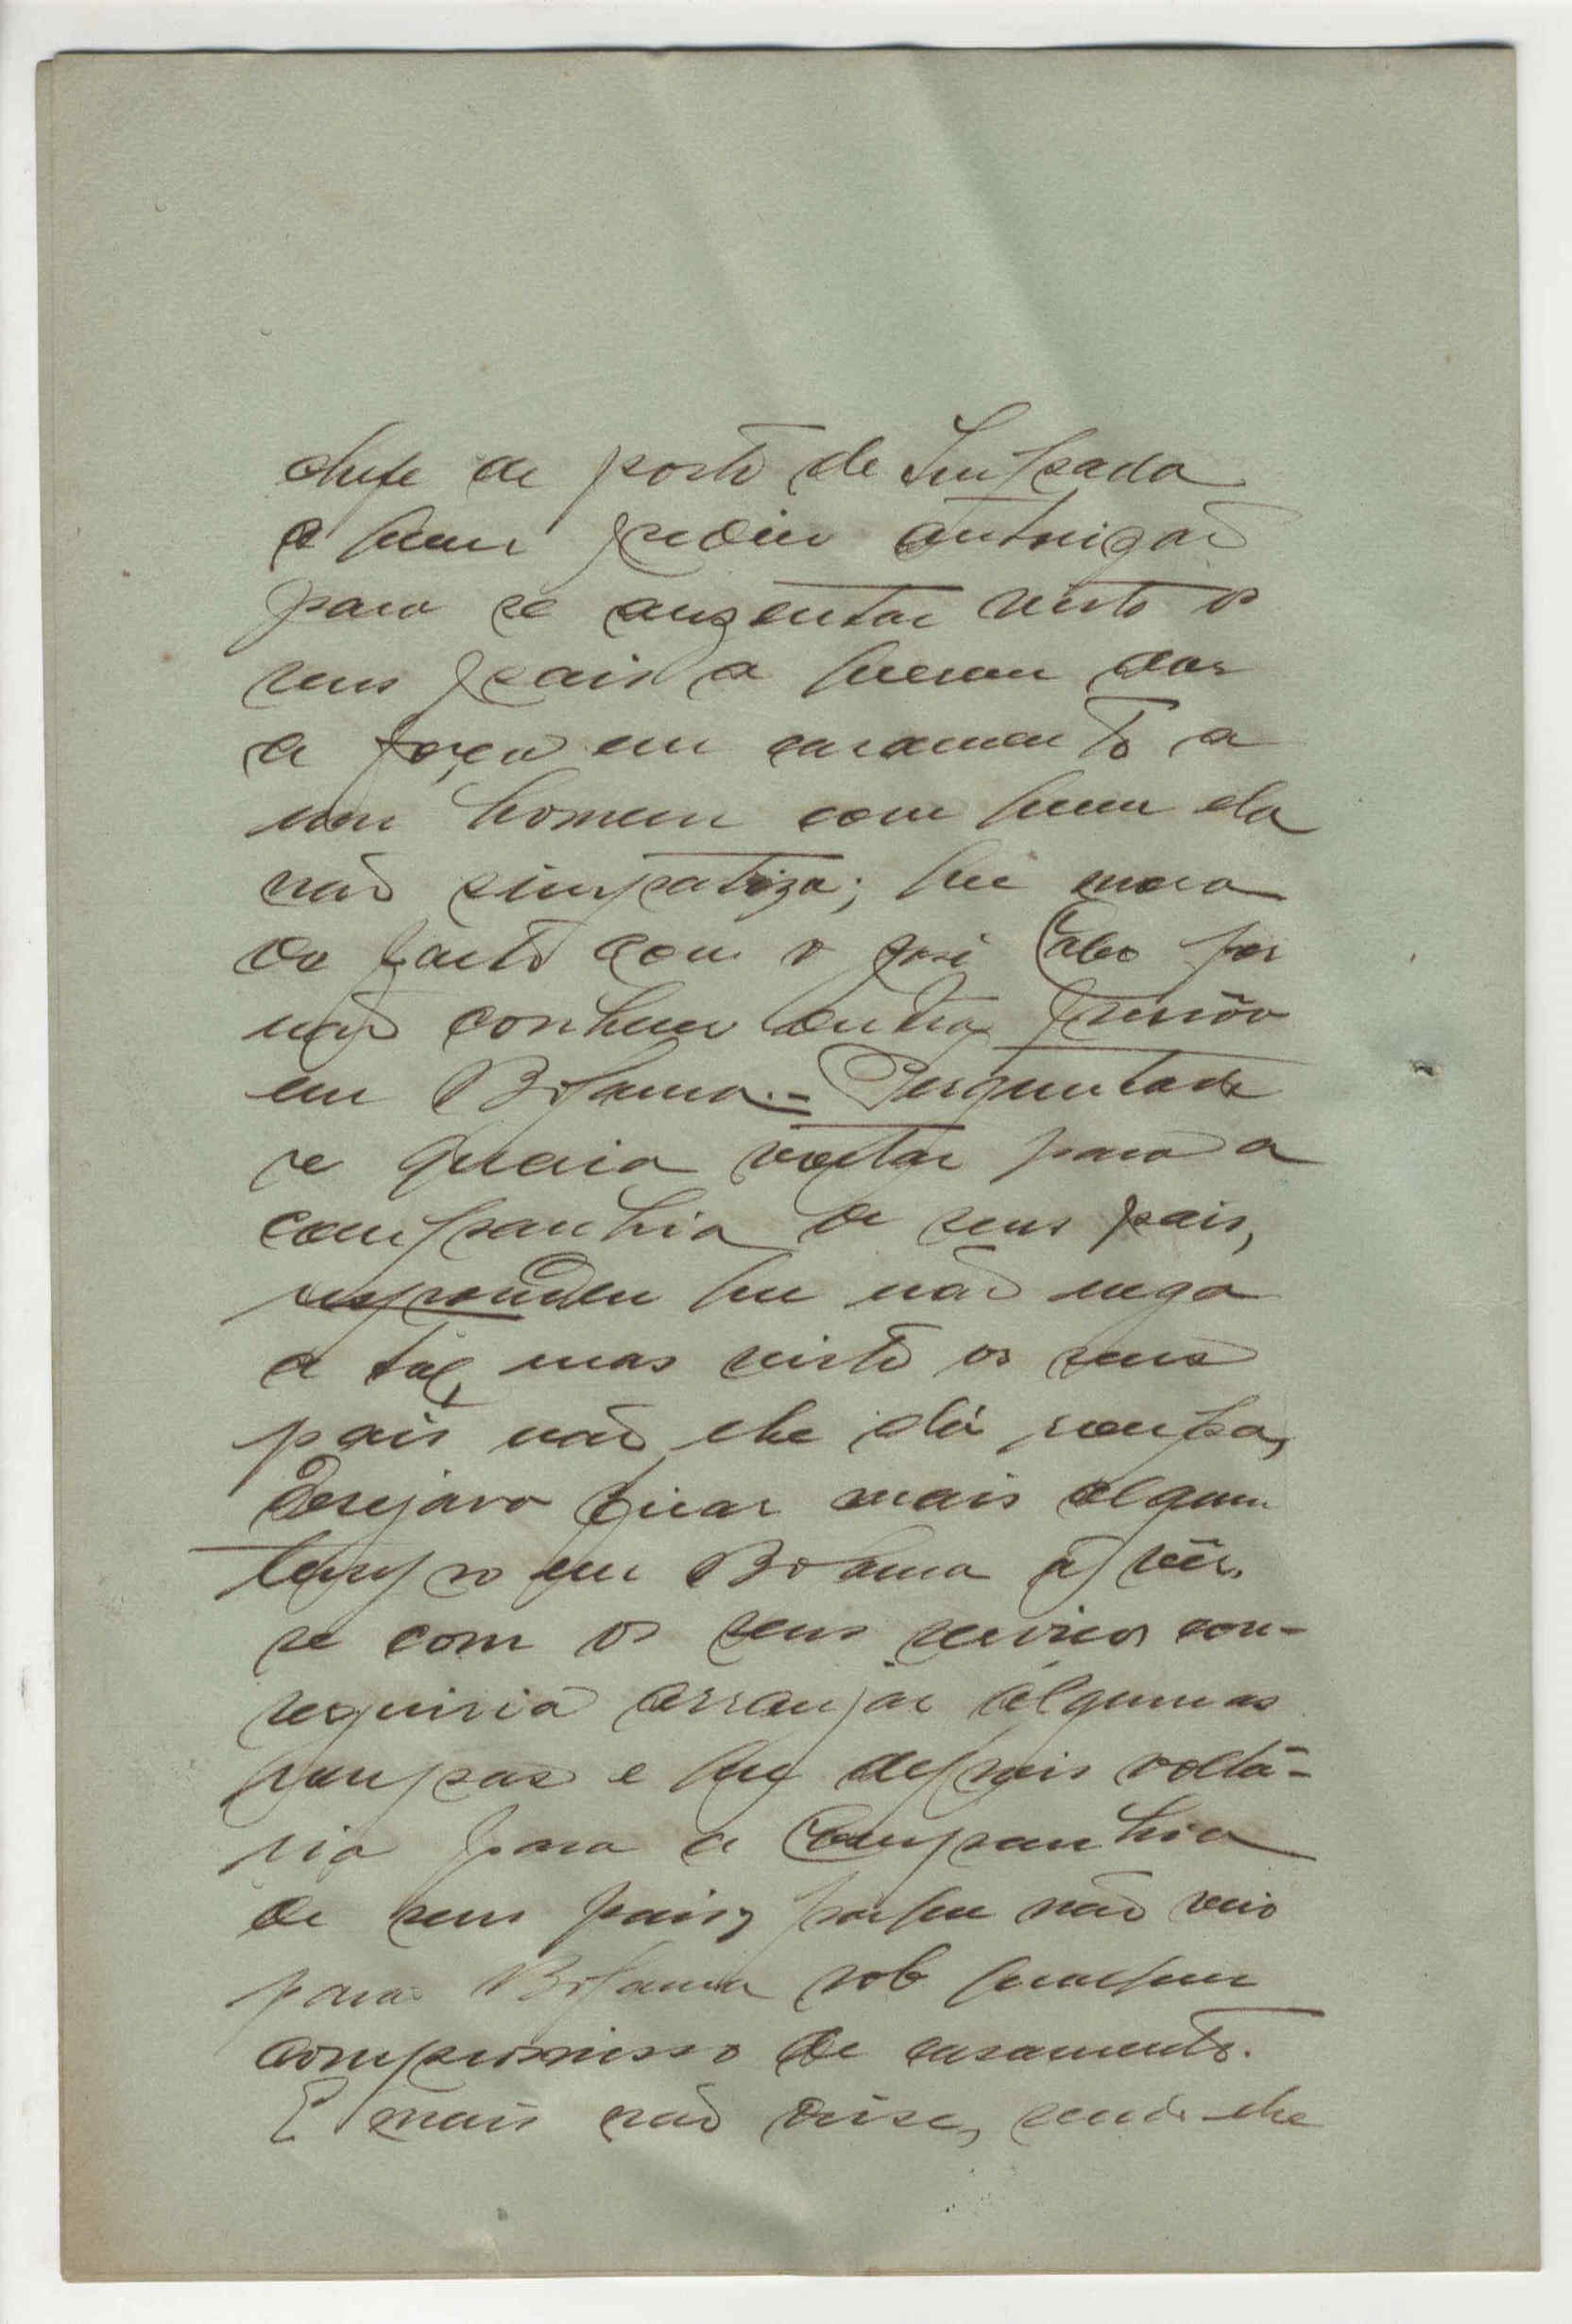 chefe de posto de Empada
a quem pediu autorização
para se auzentar visto os
seus pais a querem dar
a força em casamento a
um homem com quem ela
não simpatiza; que mora
de facto com o José Cabo por
não conhecer outra pessôa
em Bolama. = Perguntada
se queria voltar para a
companhia de seus pais,
respondeu que não nega
a tal, mas visto os seus
pais não lhe dá roupa,
desejava ficar mais algum
tempo em Bolama a vêr
se com os seus serviços con-
seguiria arranjar algumas
roupas e que depois voltá-
ria para a Companhia
de seus pais, porque não veio
para Bolama sob qualquer
compromisso de casamento.
E mais não disse, sendo lhe